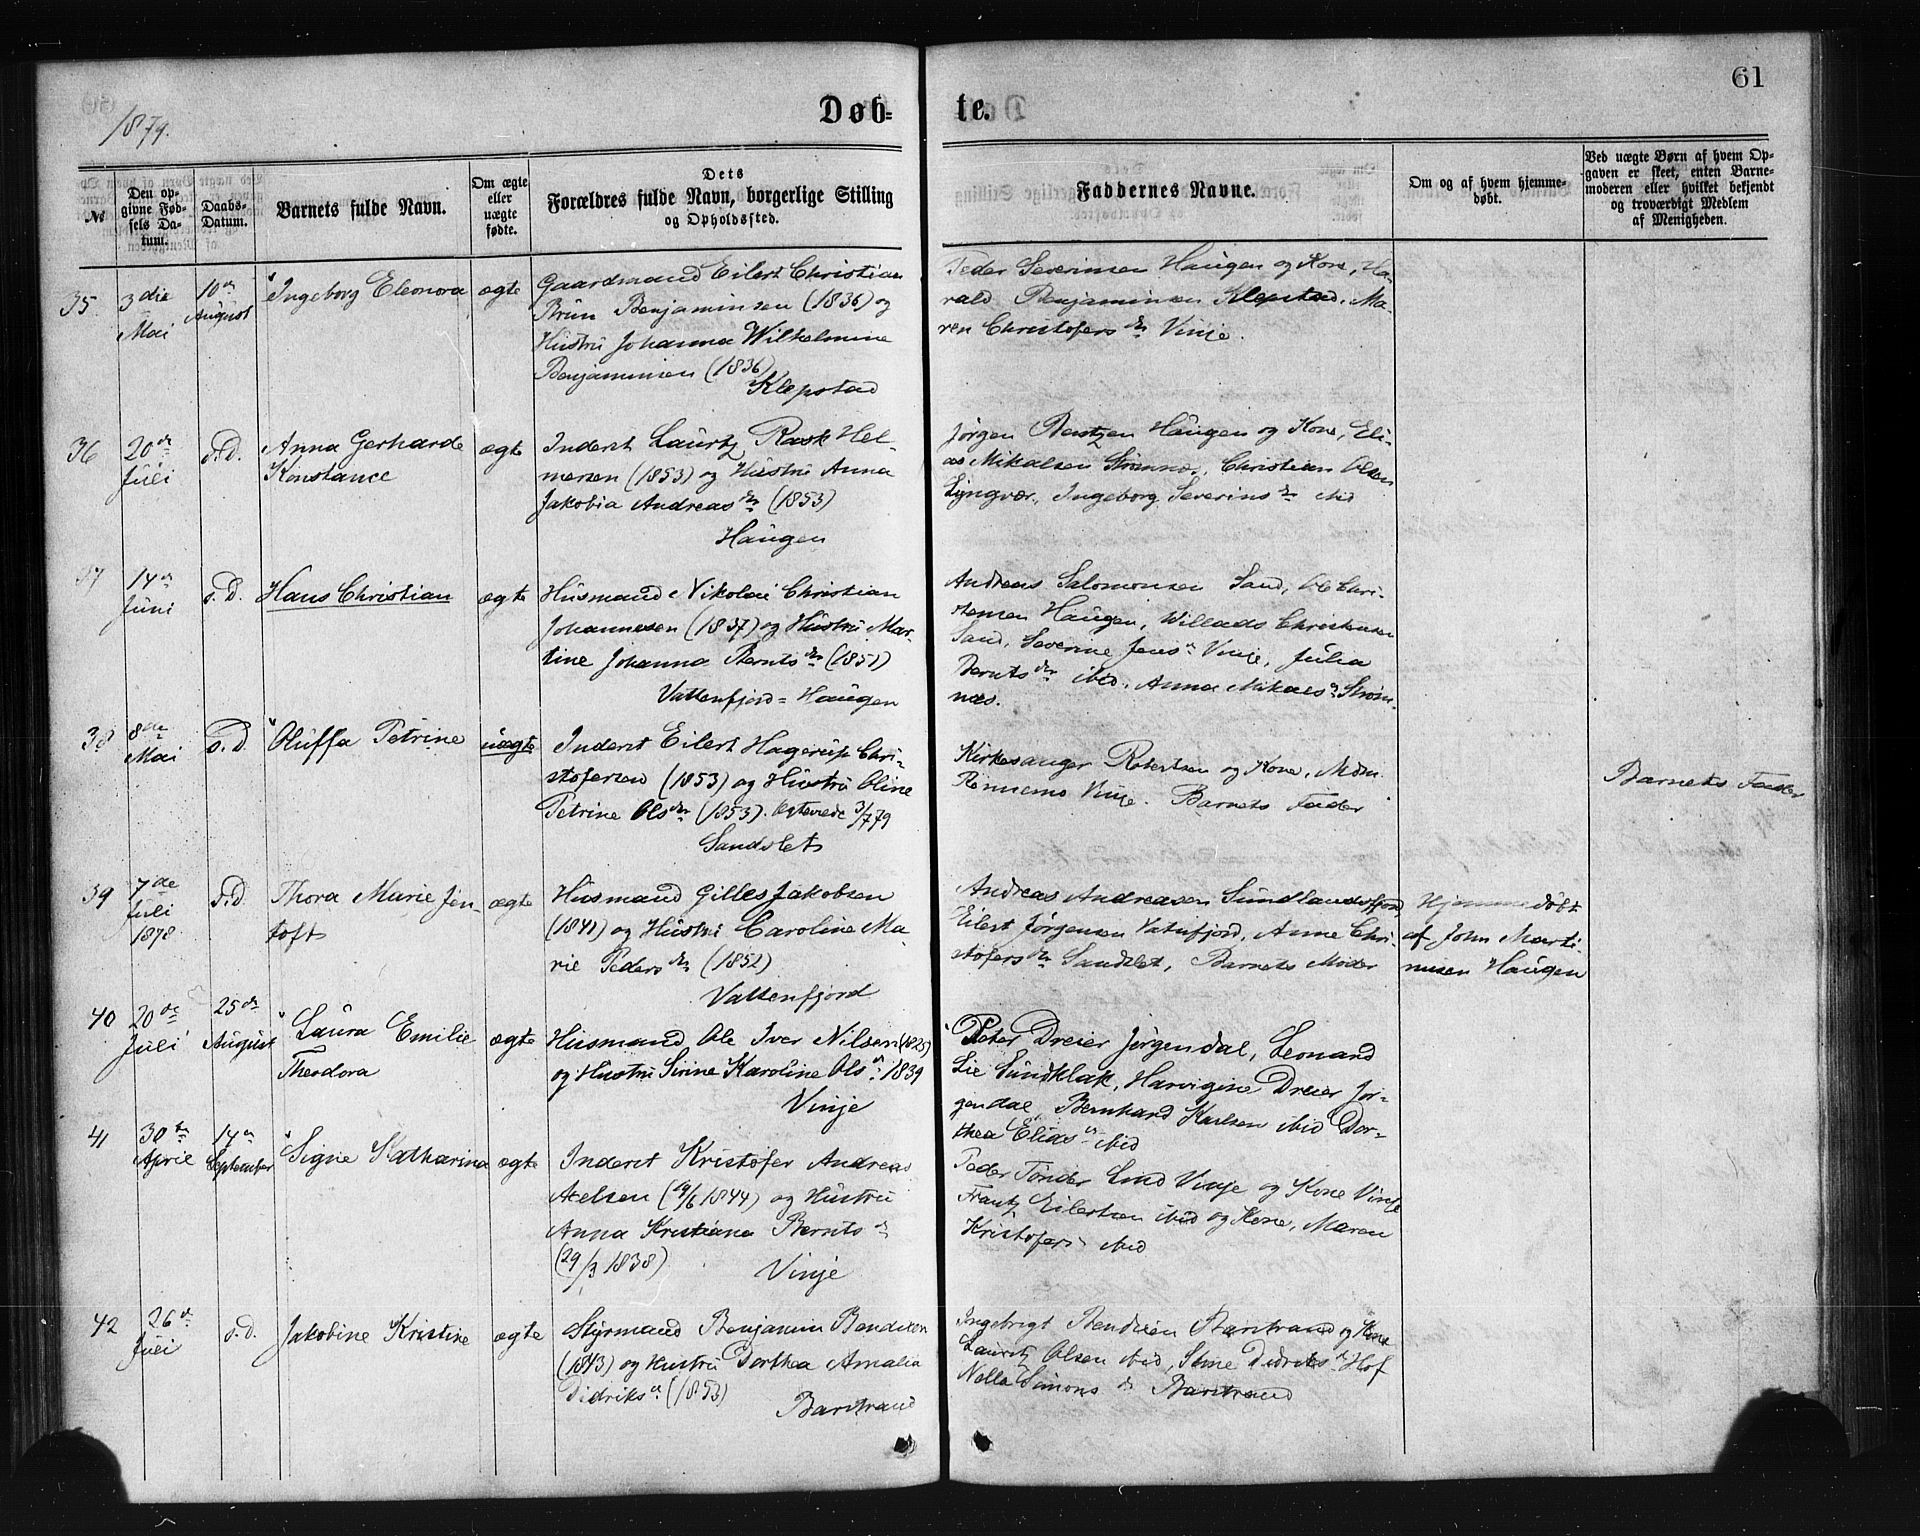 61
1879.
Døb=
te.
№
Den op-
givne Fød-
sels Da-
tum.
Daabs-
Datum.
Barnets fulde Navn.
Om ægte
eller
uægte
fødte.
Dets
Forældres fulde Navn, borgerlige Stilling
og Opholdssted.
Faddernes Navne.
Om og af hvem hjemme-
døbt.
Ved uægte Børn af hvem Op-
gaven er skeet, enten Barne-
moderen eller hvilket bekjendt
og troværdigt Medlem
af Menigheden.
35
3die
Mai
10de
August
Ingeborg Eleonora
ægte
Gaardmand Eilert Christian
Brun Benjaminsen (1836) og
Hustru Johanna Wilhelmine
Benjaminsen (1836)
Klepstad
Peder Severinsen Haugen og Kone, Ha-
rald Benjaminsen Klepstad, Ma-
ren Christofersdr Vinje.
36
20de
Juli
s.D.
Anna Gerharde
Konstance
ægte
Inderst Lauritz Rask Hel-
mersen (1853) og Hustru Anna
Jakobia Andreasdr (1853)
Haugen
Jørgen Bentzen Haugen og Kone, Eli-
as Mikalsen Strømnæs, Christian Olsen
Lyngvær, Ingeborg Severinsdr ibid
37
14de
Juni
s.D.
Hans Christian
ægte
Husmand Nikolai Christian
Johannesen (1837) og Hustru Mar-
tine Johanna Berntsdr (1851)
Vattenfjord=Haugen
Andreas Salomonsen Sand, Ole Chri-
stensen Haugen, Willads Christensen
Sand, Severine Jensdr Vinje, Julia
Berntsdr ibid, Anna Mikalsdr Strøm-
næs.
38
8de
Mai
s.D
Oluffa Petrine
uægte
Inderst Eilert Hagerup Chri-
stofersen (1853) og Hustru Oline
Petrine Olsdr (1853). Ægteviede 3/7 79
Sandslet
Kirkesanger Robertsen og Kone, Mdm.
Rønnemo Vinje. Barnets Fader
Barnets Fader
39
7de
Juli
1878
s.D.
Thora Marie Jen-
toft
ægte
Husmand Gilles Jakobsen
(1841) og Hustru Caroline Ma-
rie Pedersdr (1852)
Vattenfjord
Andreas Andreasen Sundlandsfjord
Eilert Jørgensen Vatnfjord, Anne Chri-
stofersdr Sandslet, Barnets Moder
Hjemmedøbt
af John Marti-
nusen Haugen
40
20de
Juli
25de
August
Laura Emilie
Theodora
ægte
Husmand Ole Iver Nilsen (1835)
og Hustru Sirine Karoline Olsdr 1839
Vinje
Peter Dreier Jørgendal, Leonard
Lie Sundklak, Harvigine Dreier Jør-
gendal, Bernhard Karlsen ibid Dor-
thea Eliasdr ibid
41
30te
April
14de
September
Signe Katharina
ægte
Inderst Kristofer Andreas
Axelsen (19/6 1844) og Hustru
Anna Kristiana Berntsdr
(29/3 1838)
Vinje
Peder Tønder Lind Vinje og Kone Vinje
Frantz Eilertsen ibid og Kone, Maren
Kristofersdr ibid
42
26de
Juli
s.D.
Jakobine Kristine
ægte
Styrmand Benjamin Bendixen
(1843) og Hustru Dorthea Amalia
Didriksdr (1853)
Barstrand
Ingebrigt Bendixen Barstrand og Kone
Lauritz Olsen ibid, Stine Didriksdr Hof
Nella Simonsdr Barstrand